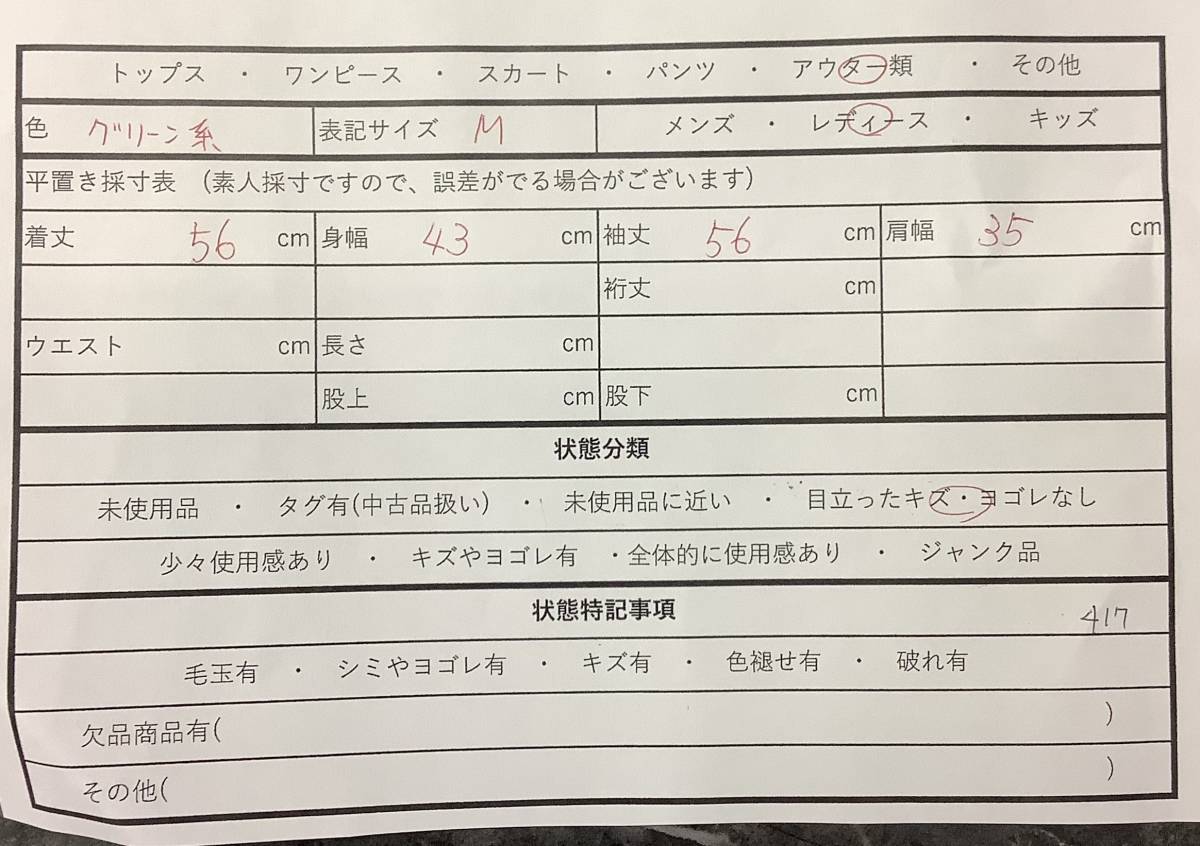 トップス ・ ワンピース ・ スカート ・ パンツ ・ アウター類 ・ その他
色 グリーン系 表記サイズ M メンズ ・ レディース ・ キッズ
平置き採寸表 (素人採寸ですので、誤差がでる場合がございます)
着丈 56 cm 身幅 43 cm 袖丈 56 cm 肩幅 35 cm
裄丈 cm
ウエスト cm 長さ cm
股上 cm 股下 cm
状態分類
未使用品 ・ タグ有(中古品扱い) ・ 未使用品に近い ・ 目立ったキズ・ヨゴレなし
少々使用感あり ・ キズやヨゴレ有 ・全体的に使用感あり ・ ジャンク品
状態特記事項
417
毛玉有 ・ シミやヨゴレ有 ・ キズ有 ・ 色褪せ有 ・ 破れ有
欠品商品有( )
その他( )